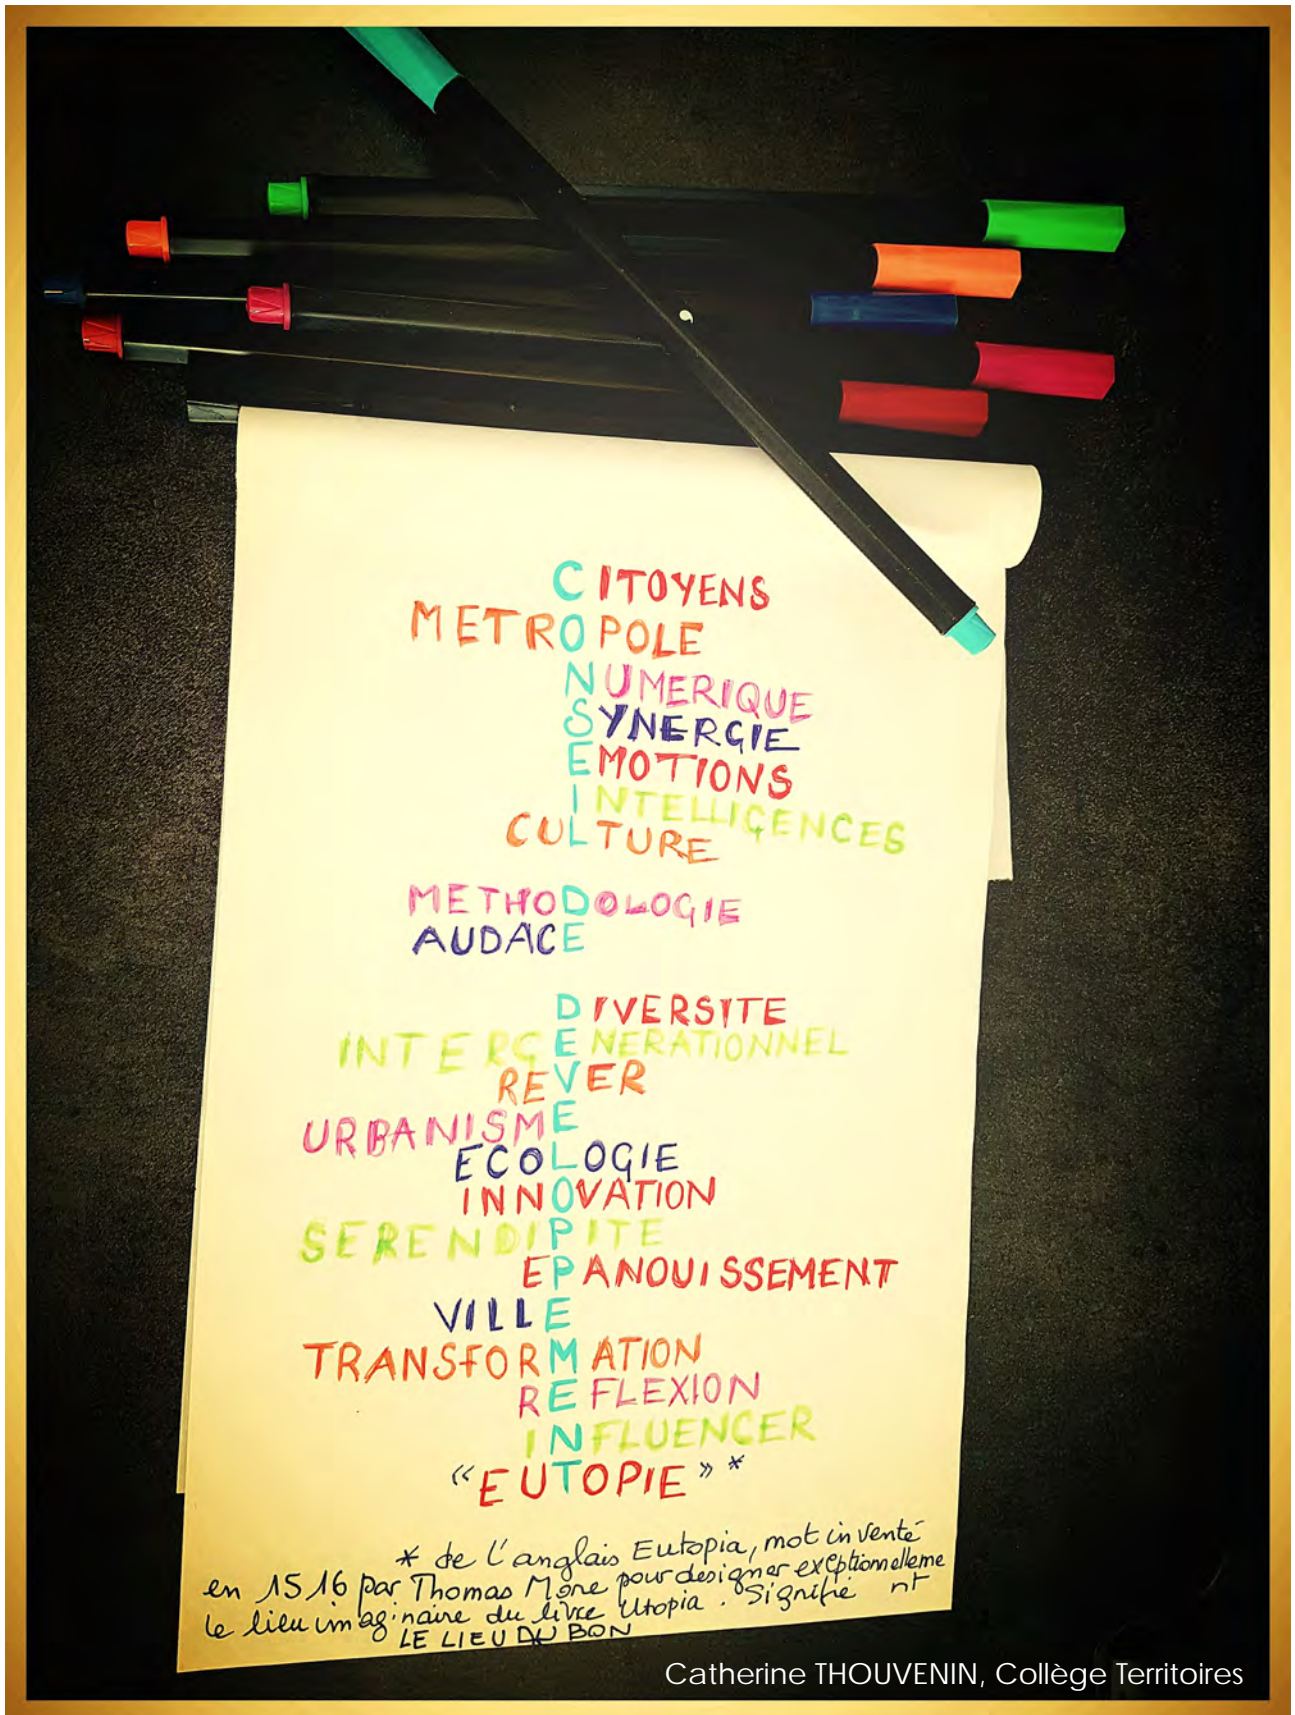 CITOYENS
METROPOLE
NUMERIQUE
SYNERGIE
EMOTIONS
INTELLIGENCES
CULTURE
METHODOLOGIE
AUDACE
DIVERSITE
INTERGENERATIONNEL
REVER
URBANISME
ECOLOGIE
INNOVATION
SERENDIPITE
EPANOUISSEMENT
VILLE
TRANSFORMATION
REFLEXION
INFLUENCER
"EUTOPIE" *
* de l'anglais Eutopia, mot inventé
en 1516 par Thomas More pour designer exceptionnellement
le lieu imaginaire du livre Utopia. Signifie
LE LIEU DU BON
Catherine THOUVENIN, Collège Territoires